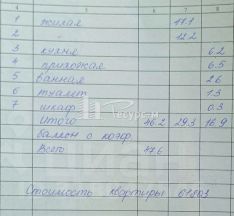 4 5 6 7 8
1 жилая 17.1
2 " 12.2
3 кухня 6.2
4 прихожая 6.5
5 ванная 2.6
6 туалет 1.3
7 шкаф 0.3
Итого 46.2 29.3 16.9
балкон с коэф.
Всего 47.6
Стоимость квартиры 61803